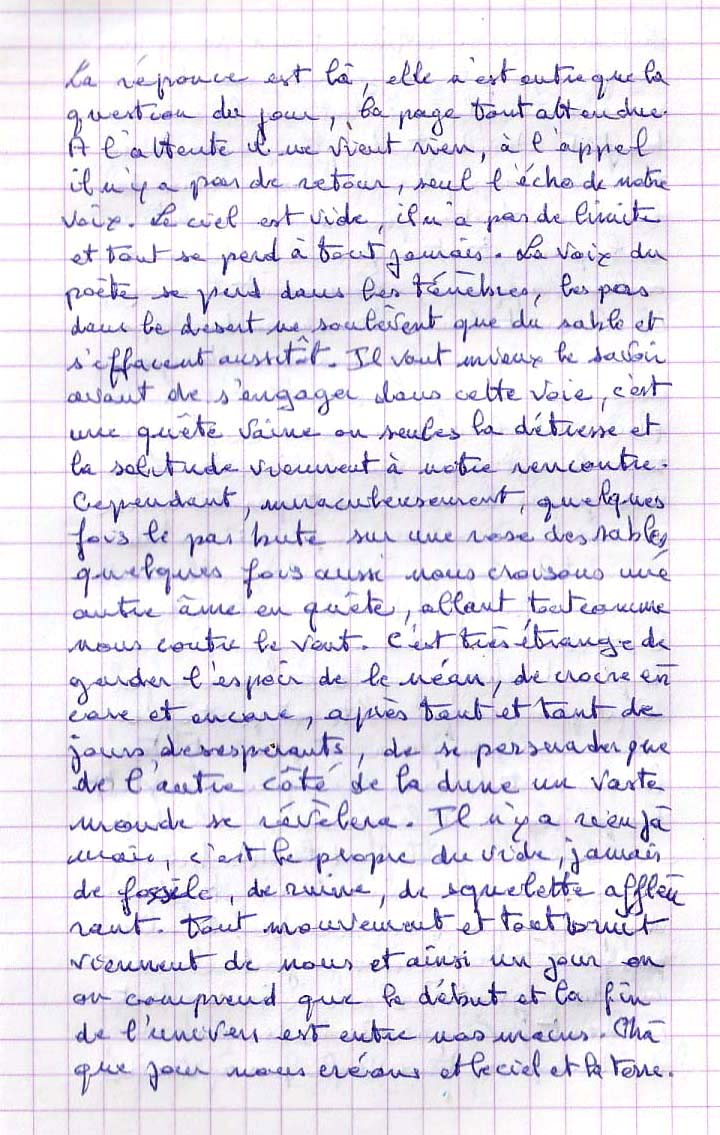 La réponce est là, elle n'est autre que la
question du jour, la page tout attendue.
A l'attente il ne vient rien, à l'appel
il n'y a pas de retour, seul l'écho de notre
voix. Le ciel est vide, il n'a pas de limite
et tout se perd à tout jamais. La voix du
poète se perd dans les ténèbres, les pas
dans le désert ne soulèvent que du sable et
s'effacent aussitôt. Il vaut mieux le savoir
avant de s'engager dans cette voie, c'est
une quête vaine ou seules la détresse et
la solitude viennent à notre rencontre.
Cependant, miraculeusement, quelques
fois le pas bute sur une rose des sables,
quelques fois aussi nous croisons une
autre âme en quête, allant tout comme
nous contre le vent. C'est très étrange de
garder l'espoir de le néan, de croire en
core et encore, après tant et tant de
jours desesperants, de se persuader que
de l'autre côté de la dune un vaste
monde se révèlera. Il n'y a rien ja
mais, c'est le propre du vide, jamais
de fossile, de ruine, de squelette affleu
rant. Tout mouvement et tout bruit
viennent de nous et ainsi un jour on
on comprend que le début et la fin
de l'univers est entre nos mains. Cha
que jour nous créons et le ciel et la terre.